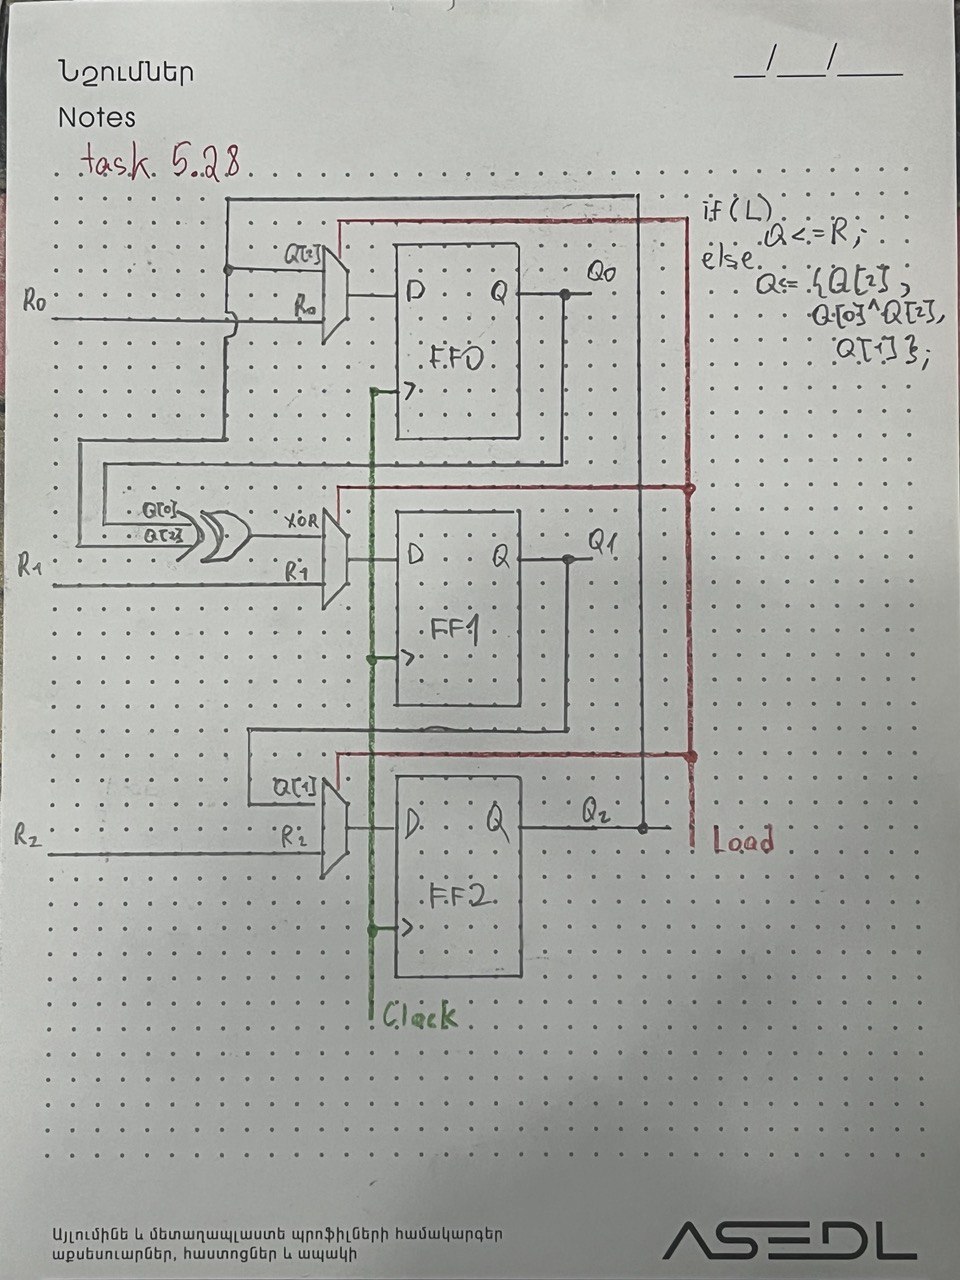 Նշումներ
__/__/___
Notes
task 5.28
if (L)
Q <= R;
else
Q <= {Q[2],
Q[0]^Q[2],
Q[1]};
Q[2]
R0
R0
D
Q
Q0
FF0
>
Q[0]
Q[2]
XOR
R1
R1
D
Q
Q1
FF1
>
Q[1]
R2
R2
D
Q
Q2
Load
FF2
>
Clock
Այլումինե և մետաղապլաստե պրոֆիլների համակարգեր
աքսեսուարներ, հաստոցներ և ապակի
ASEDL